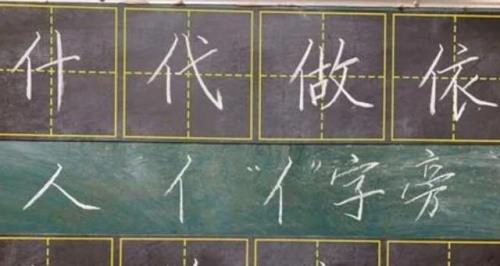 什代做依
人 亻 "亻"字旁